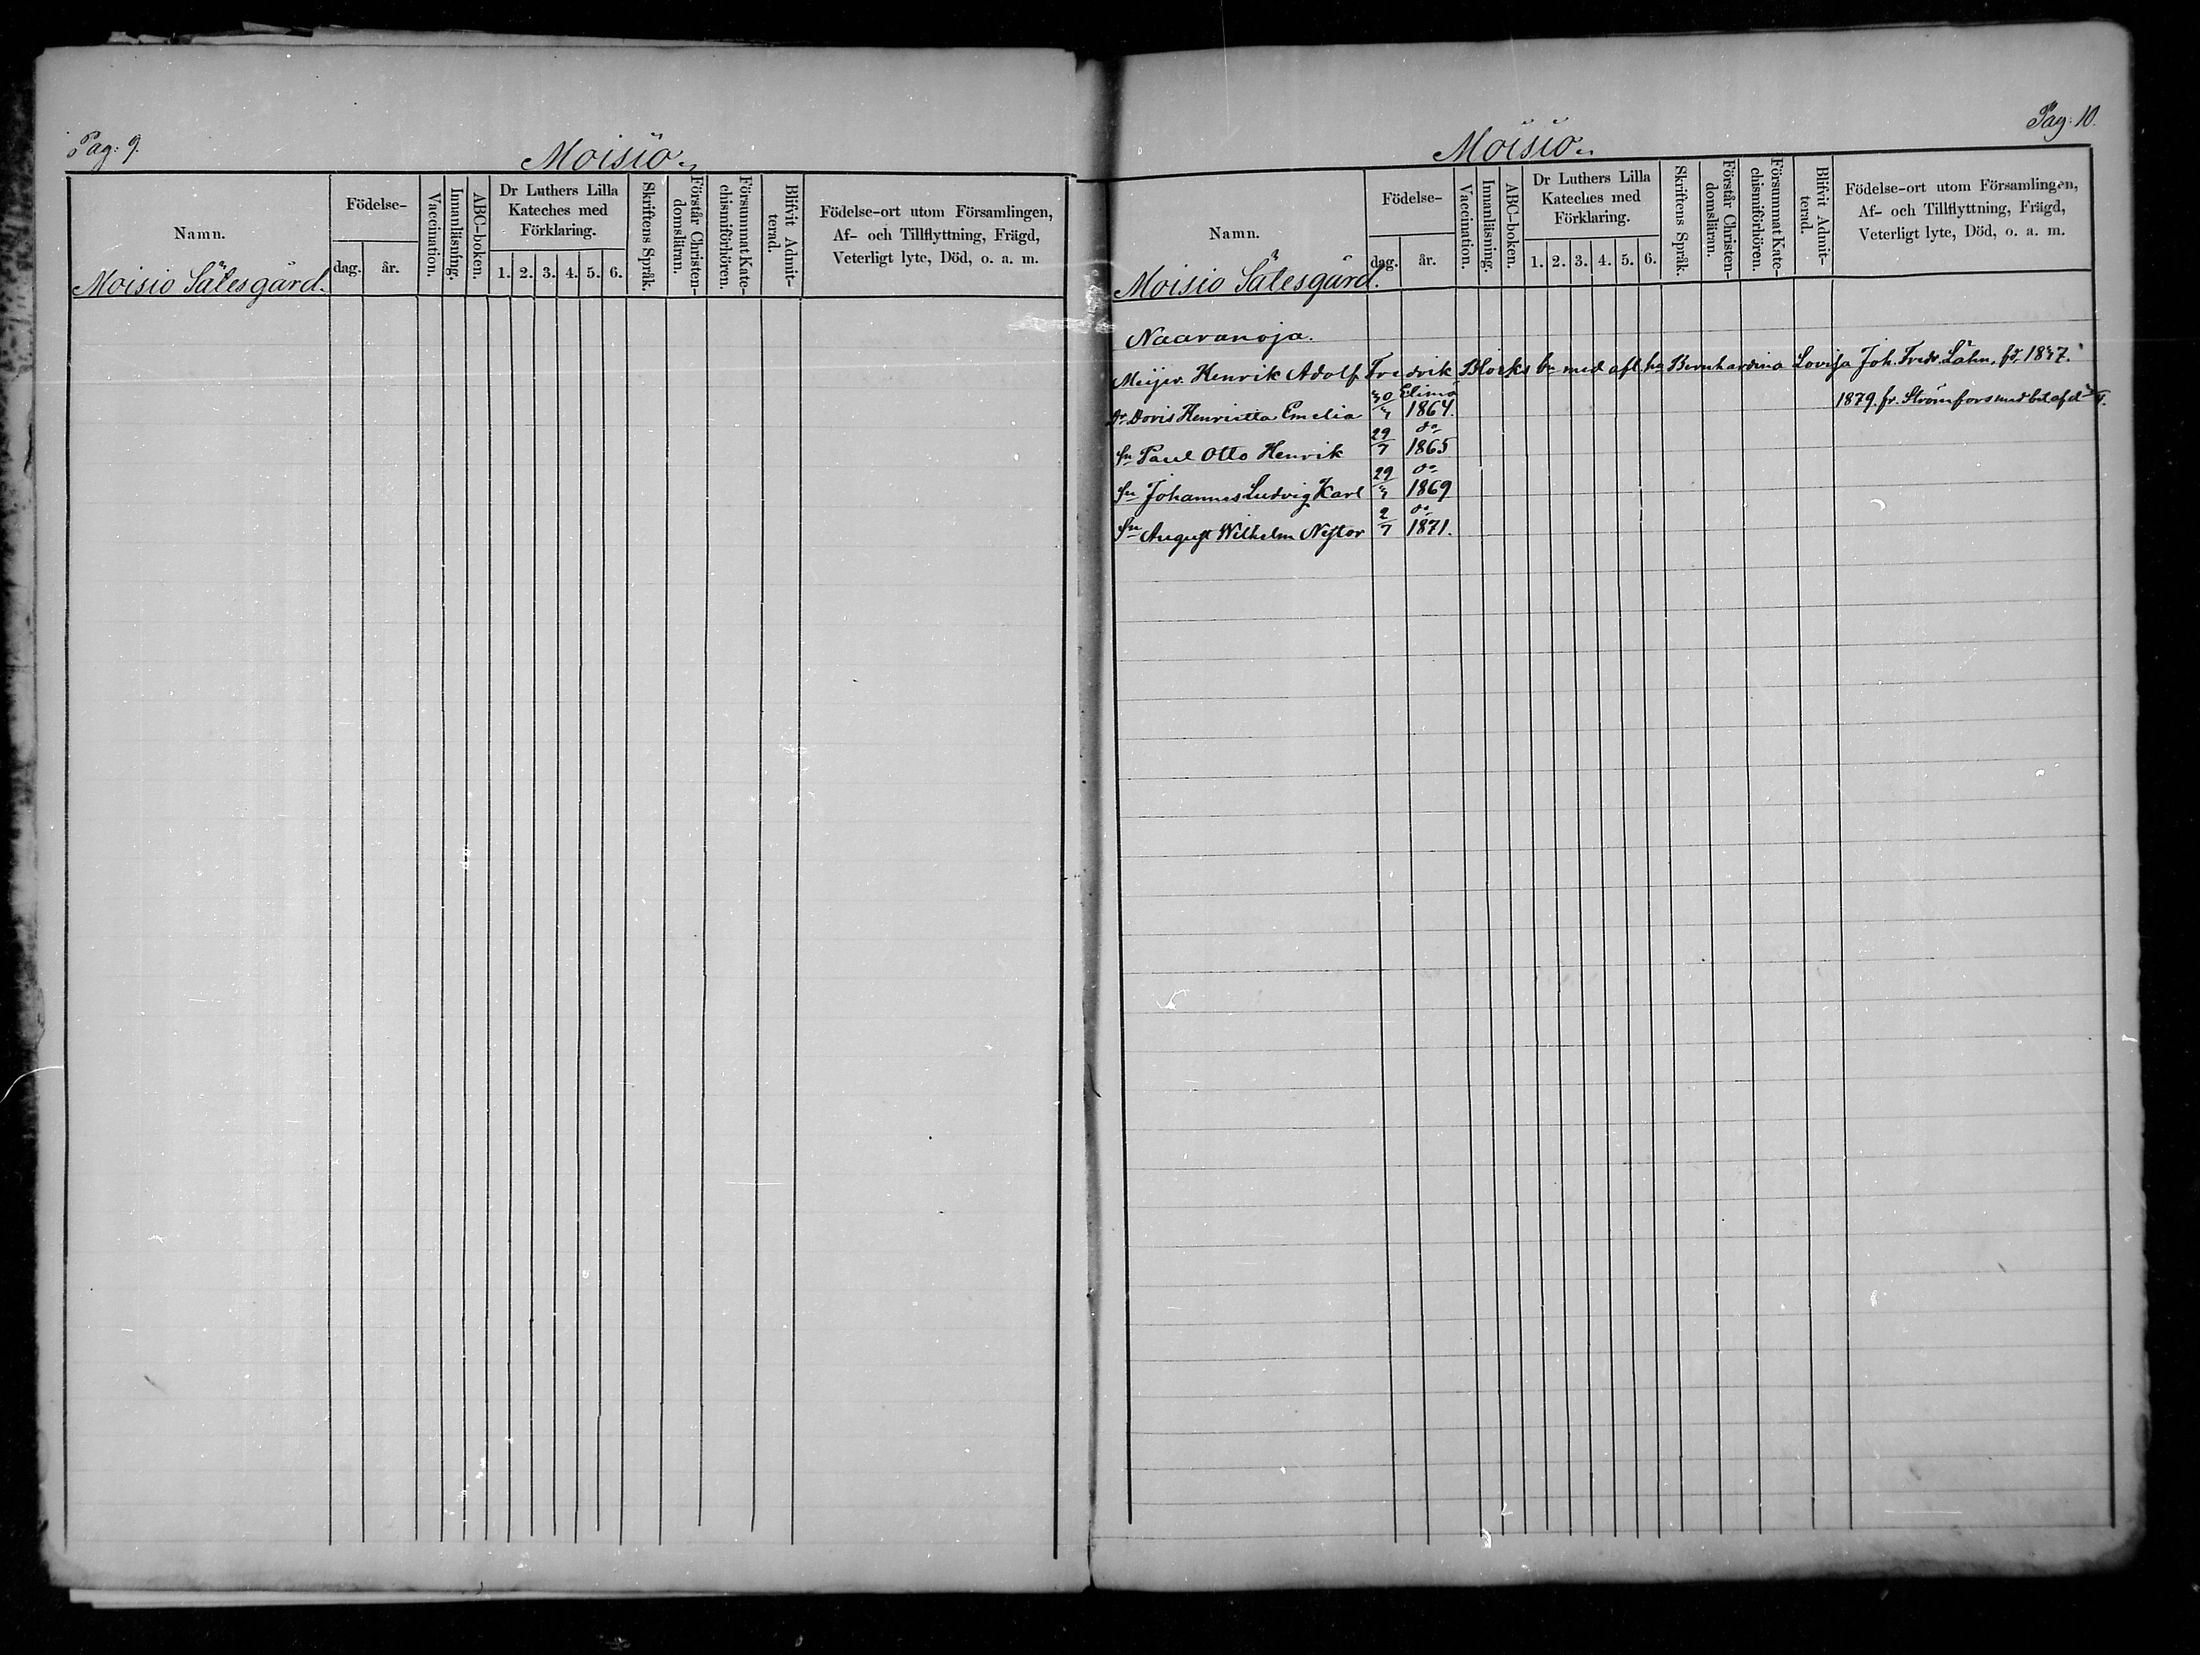 Pag: 9.
Moisio.
Namn.
Födelse-
dag.
år.
Vaccination.
Innanläsning.
ABC-boken.
Dr Luthers Lilla
Kateches med
Förklaring.
1. 2. 3. 4. 5. 6.
Skriftens Språk.
Förstår Christen-
domsläran.
Försummat Kate-
chismiförhören.
Blifvit Admit-
terad.
Födelse-ort utom Församlingen,
Af- och Tillflyttning, Frägd,
Veterligt lyte, Död, o. a. m.
Moisio Sätesgård.
Pag: 10.
Moisio.
Namn.
Födelse-
dag.
år.
Vaccination.
Innanläsning.
ABC-boken.
Dr Luthers Lilla
Kateches med
Förklaring.
1. 2. 3. 4. 5. 6.
Skriftens Språk.
Förstår Christen-
domsläran.
Försummat Kate-
chismiförhören.
Blifvit Admit-
terad.
Födelse-ort utom Församlingen,
Af- och Tillflyttning, Frägd,
Veterligt lyte, Död, o. a. m.
Moisio Sätesgård.
Naaranoja.
Meijer. Henrik Adolf Fredrik Blocks bn med afl. hu Bernhardina Lovisa Joh. Fredr.
Elimä
Dr Doris Henrietta Emelia 1864. 1879. fr. Strömfors med bet af d
do
Sn Paul Otto Henrik 29/7 1865
do
Sn Johannes Ludvig Karl 1869
do
Sn August Wilhelm Nestor 2/7 1871.